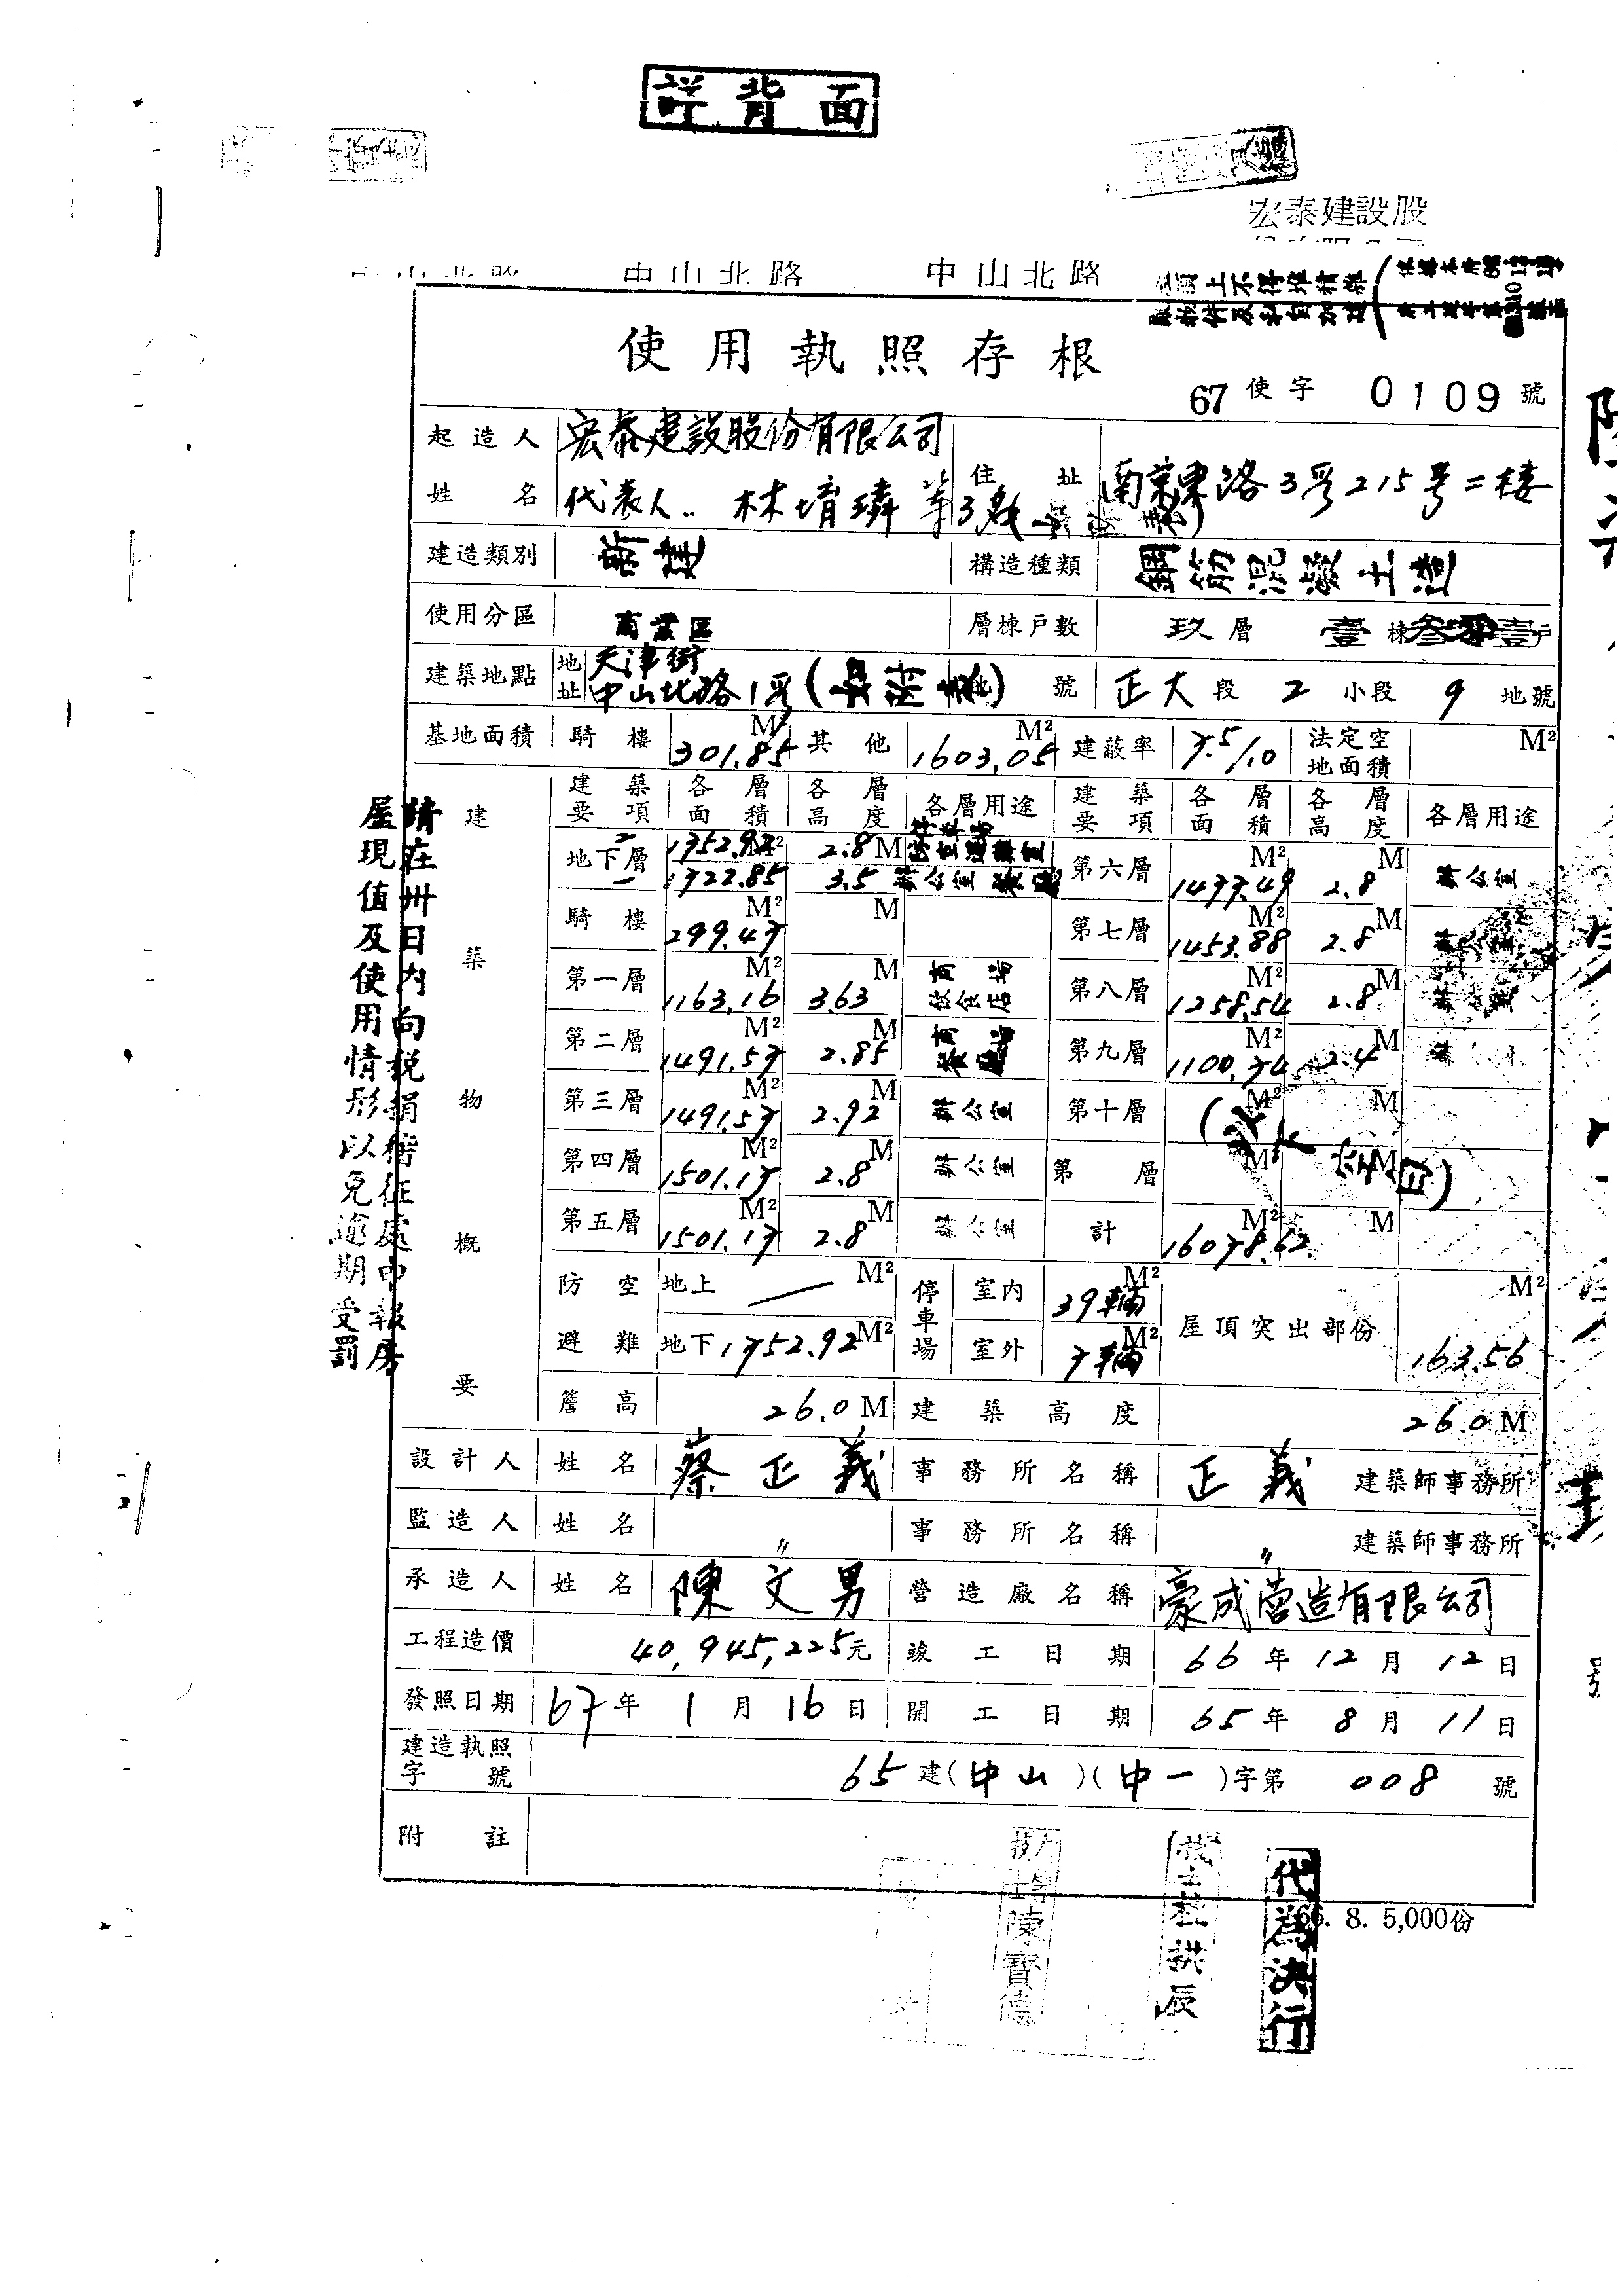 詳背面
宏泰建設股
中山北路 中山北路
使用執照存根
67 使字 0109 號
起造人姓名 宏泰建設股份有限公司
代表人:林堉璘 等3名
住址 南京東路3段215号二樓
建造類別 新建 構造種類 鋼筋混凝土造
使用分區 商業區 層棟戶數 玖層 壹棟 戶
建築地點 地址 天津街
中山北路1段 地號 正大段 2 小段 9 地號
基地面積 騎樓 301.85 M² 其他 1603.05 M² 建蔽率 7.5/10 法定空地面積 M²
建築物概要
建築要項 各層面積 各層高度 各層用途 建築要項 各層面積 各層高度 各層用途
地下層 二 1752.92 M² 2.8 M
一 1722.85 3.5 辦公室 餐廳
第六層 1477.49 M² 2.8 M 辦公室
騎樓 299.47 M² M 第七層 1453.88 M² 2.8 M 辦公室
第一層 1163.16 M² 3.63 M 商場 飲食店 第八層 1258.54 M² 2.8 M 辦公室
第二層 1491.57 M² 2.85 M 商場 餐廳 第九層 1100.74 M² 2.4 M
第三層 1491.57 M² 2.92 M 辦公室 第十層 M² M
第四層 1501.17 M² 2.8 M 辦公室 第 層 M² M
第五層 1501.17 M² 2.8 M 辦公室 計 16078.62 M² M
(以下空白)
防空避難 地上 — M² 地下 1752.92 M²
停車場 室內 39輛 M² 室外 7輛 M²
屋頂突出部份 163.56 M²
簷高 26.0 M 建築高度 26.0 M
設計人 姓名 蔡正義 事務所名稱 正義 建築師事務所
監造人 姓名 〃 事務所名稱 〃 建築師事務所
承造人 姓名 陳文男 營造廠名稱 豪成營造有限公司
工程造價 40,945,225元 竣工日期 66年12月12日
發照日期 67年1月16日 開工日期 65年8月11日
建造執照字號 65建(中山)(中一)字第 008 號
附註
請在卅日內向稅捐稽征處申報房
屋現值及使用情形以免逾期受罰
陳寶德
代為決行
66. 8. 5,000份